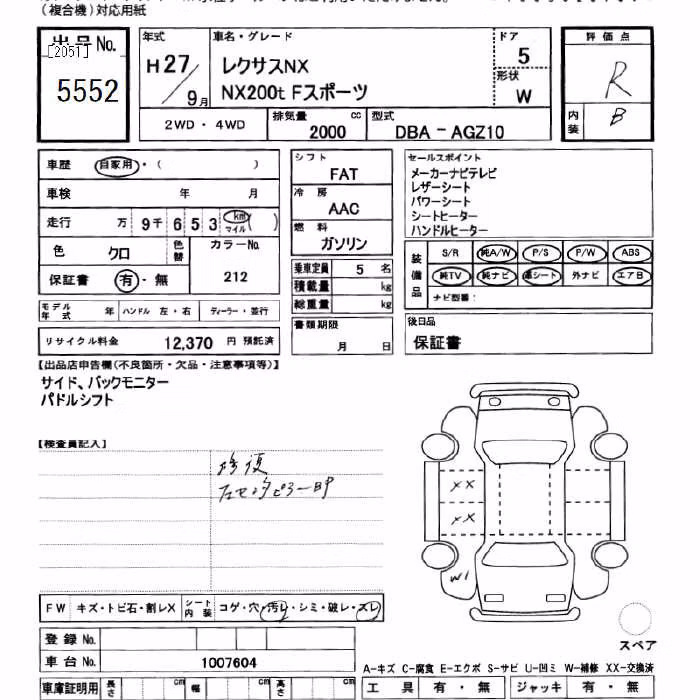 (複合機)対応用紙
出品No.
[2051]
5552
年式
H27/9月
車名・グレード
レクサスNX
NX200t Fスポーツ
ドア
5
形状
W
2WD・4WD
排気量
2000 cc
型式
DBA - AGZ10
評価点
R
内装
B
車歴 自家用・( )
車検 年 月
走行 万 9千 6 5 3 km マイル ( )
色 クロ 色替 カラーNo.
保証書 有・無 212
モデル年式 年 ハンドル 左・右 ディーラー・並行
リサイクル料金 12,370 円 預託済
シフト
FAT
冷房
AAC
燃料
ガソリン
乗車定員 5 名
積載量 kg
総重量 kg
書類期限
月 日
セールスポイント
メーカーナビテレビ
レザーシート
パワーシート
シートヒーター
ハンドルヒーター
装備品
S/R 純A/W P/S P/W ABS
純TV 純ナビ 革シート 外ナビ エアB
ナビ型番:
後日品
保証書
【出品店申告欄(不良箇所・欠品・注意事項等)】
サイド、バックモニター
パドルシフト
【検査員記入】
修復
左センタピラーBP
XX
XX
W1
スペア
FW キズ・トビ石・割レX シート内装 コゲ・穴・汚レ・シミ・破レ・スレ
登録No.
車台No. 1007604
車庫証明用 長さ cm 幅 cm 高さ cm
A-キズ C-腐食 E-エクボ S-サビ U-凹ミ W-補修 XX-交換済
工具 有・無 ジャッキ 有・無